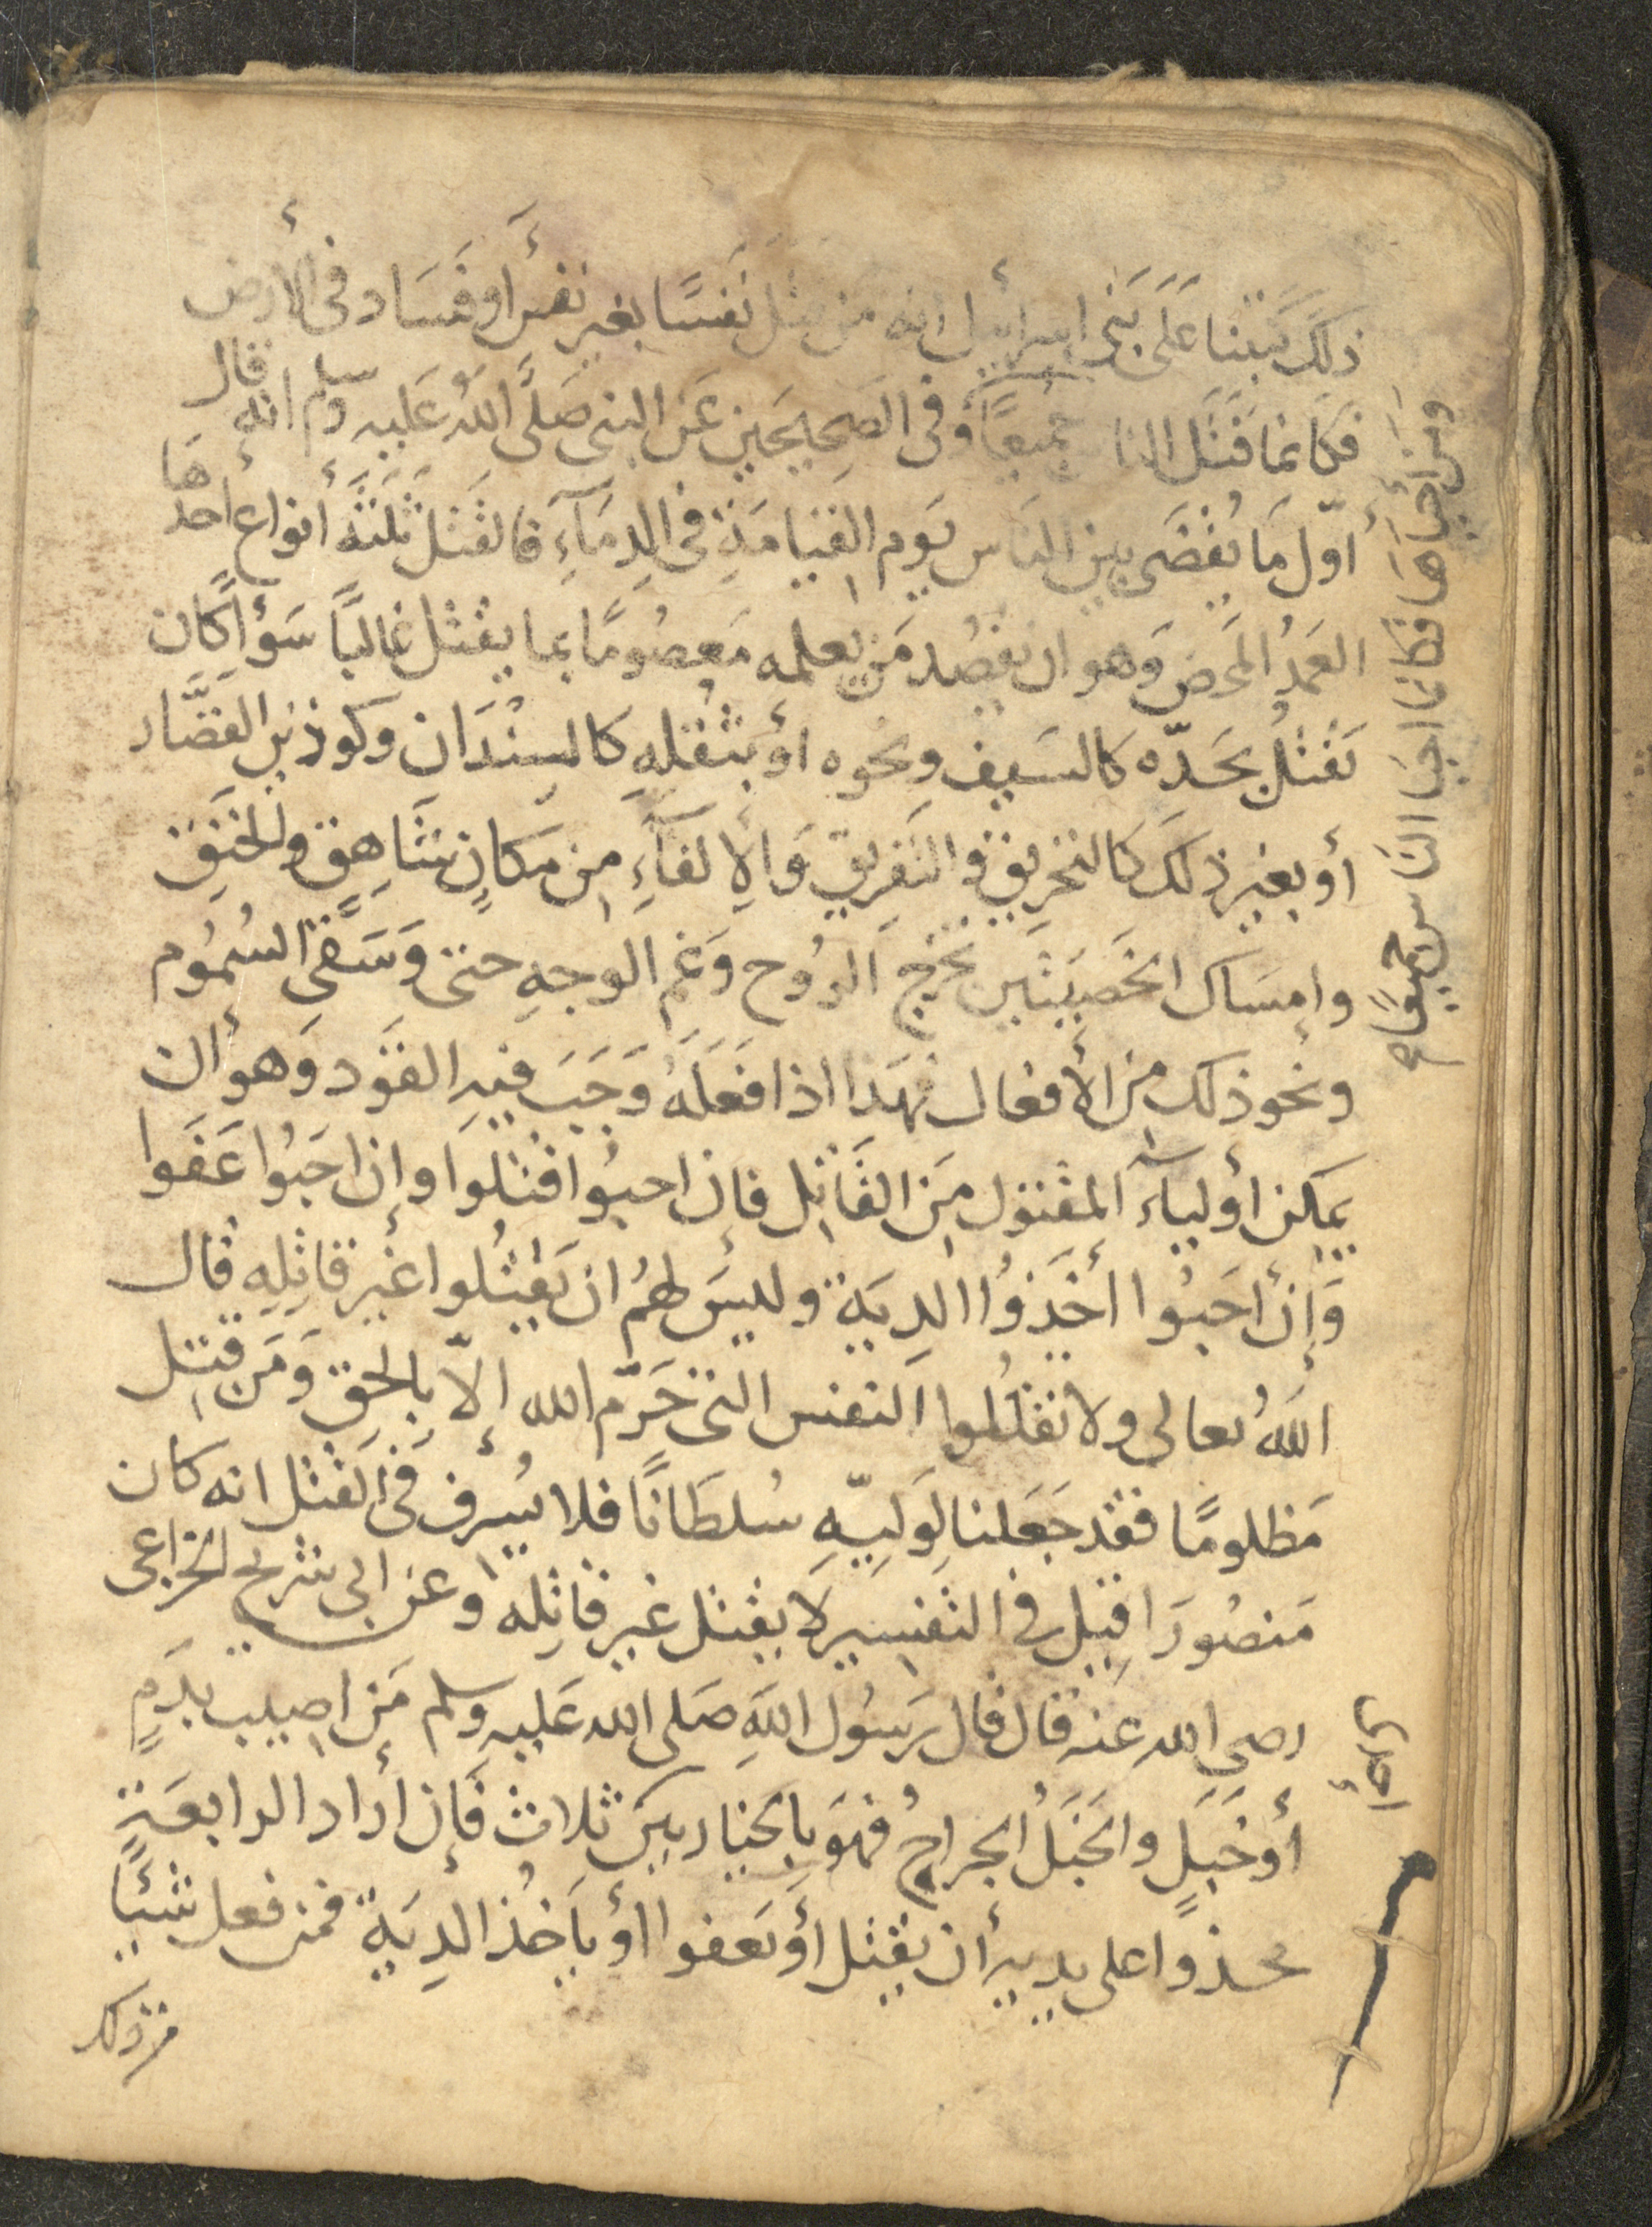 ذلك كتبنا على بنى اسرائيل انه من قتل نفسا بغير نفس أو فساد فى الأرض
فكانما قتل الناس جميعًا وفى الصحيحين عن النبى صلى الله عليه وسلم انه قال
أوّل ما يُقضى بين الناس يوم القيامة فى الدماء فالقتل ثلثة أنواع احدها
العمدُ المحض وهو ان يقصُد من يعلمه معصُومًا بما يقتل غالبًا سوأ كان
يقتلُ بحدّه كالسيف ونحوه اؤ بثقله كالسِنْدَان وكوذين القصّار
أو بغير ذلك كالتحريق والتغريق والإلقاءِ من مكانٍ شاهق والخنق
وإمساك الخصيتين تخرج الروُح وغم الوجهِ حتى وسقى السُمُوم
ونحو ذلك من الأفعال فهذا اذا فعلهُ وجب فيه القود وهو أن
يمكن أولياءَ المقتول من القاتل فان احبوُا قتلوا وإن احبوُا عفوا
وإن أحبوُا أخذوُا الدية وليسَ لهُم ان يقتُلوا غير قاتلِهِ قال
اللهُ تعالى ولا تقتُلوا النفس التى حرّم الله إلاّ بالحق ومن قتل
مظلومًا فقد جعلنا لوليّهِ سُلطانًا فلا يُسرف فى القتل انه كان
منصُورا قيل فى التفسير لا يقتل غير قاتِلِه وعن ابى شريح الخزاعى
رضى الله عنه قال قال رسُول اللهِ صلى الله عليه وسلم من اصيب بدمٍ
أو خبلٍ والخبلُ الجراحُ فهو بالخيار بين ثلاث فإن أراد الرابعة
فخذوا على يديه أن يقتل أو يعفوا أو يأخُذ الدية فمن فعل شيئًا
من ذلك
ومن أحياها فكانما احيا الناس جميعًا صح